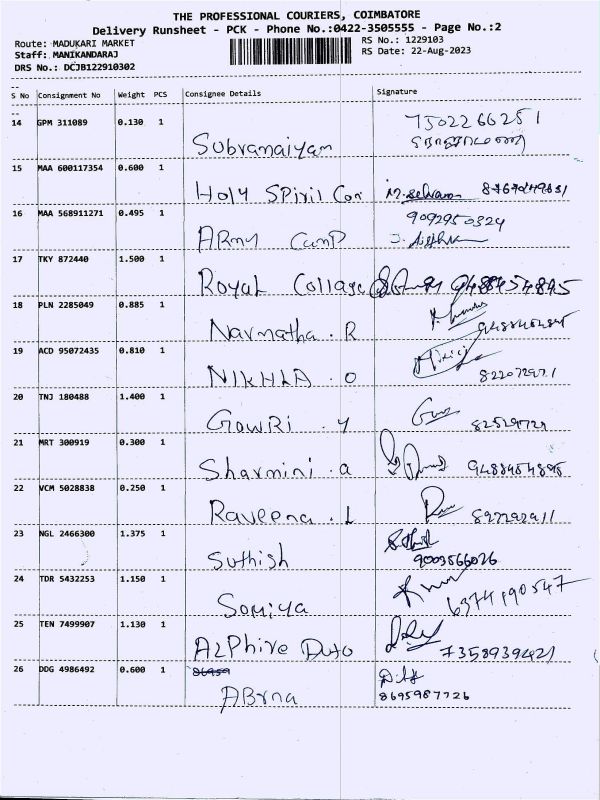 THE PROFESSIONAL COURIERS, COIMBATORE
Delivery Runsheet - PCK - Phone No.:0422-3505555 - Page No.:2
Route: MADUKARI MARKET
RS No.: 1229103
Staff: MANIKANDARAJ
RS Date: 22-Aug-2023
DRS No.: DCJB122910302
S No Consignment No Weight PCS Consignee Details Signature
14 GPM 311089 0.130 1
7502266251
Subramaiyam
15 MAA 600117354 0.600 1
Holy SPiril Con M.Selvam
16 MAA 568911271 0.495 1
9092950324
ARmy CamP
17 TKY 872440 1.500 1
Royal Collage 9488454895
18 PLN 2285049 0.885 1
Navmatha . R
19 ACD 95072435 0.810 1
NIKHLA . O
20 TNJ 180488 1.400 1
GowRi . Y
21 MRT 300919 0.300 1
Sharmini . a 9488454895
22 VCM 5028838 0.250 1
Raveena . L
23 NGL 2466300 1.375 1
Suthish 9003566026
24 TDR 5432253 1.150 1
Somiya 6374190547
25 TEN 7499907 1.130 1
ALPhire Duto 7358939421
26 DDG 4986492 0.600 1
ABrna 8695987726